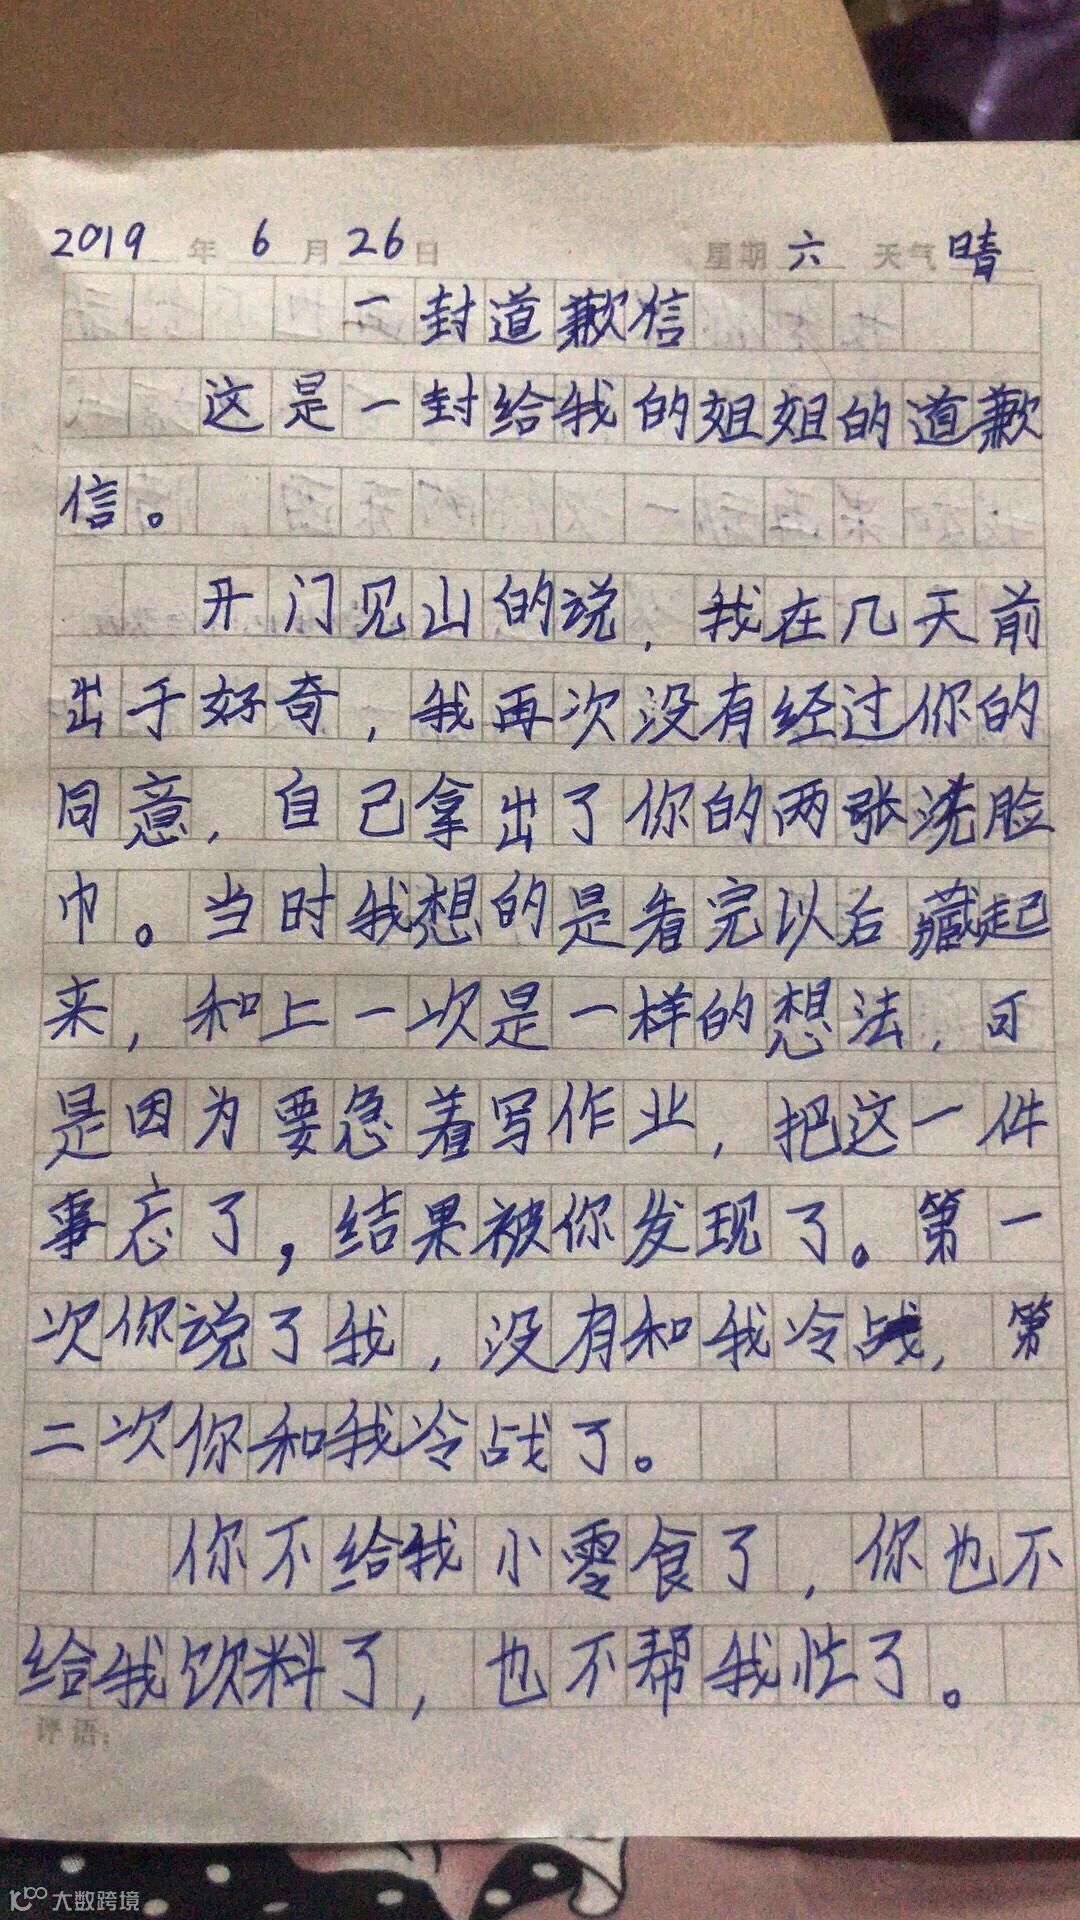 2019年6月26日 星期六 天气晴
一封道歉信
这是一封给我的姐姐的道歉
信。
开门见山的说，我在几天前
出于好奇，我再次没有经过你的
同意，自己拿出了你的两张洗脸
巾。当时我想的是看完以后藏起
来，和上一次是一样的想法，可
是因为要急着写作业，把这一件
事忘了，结果被你发现了。第一
次你说了我，没有和我冷战，第
二次你和我冷战了。
你不给我小零食了，你也不
给我饮料了，也不帮我忙了。
评语：
大数跨境